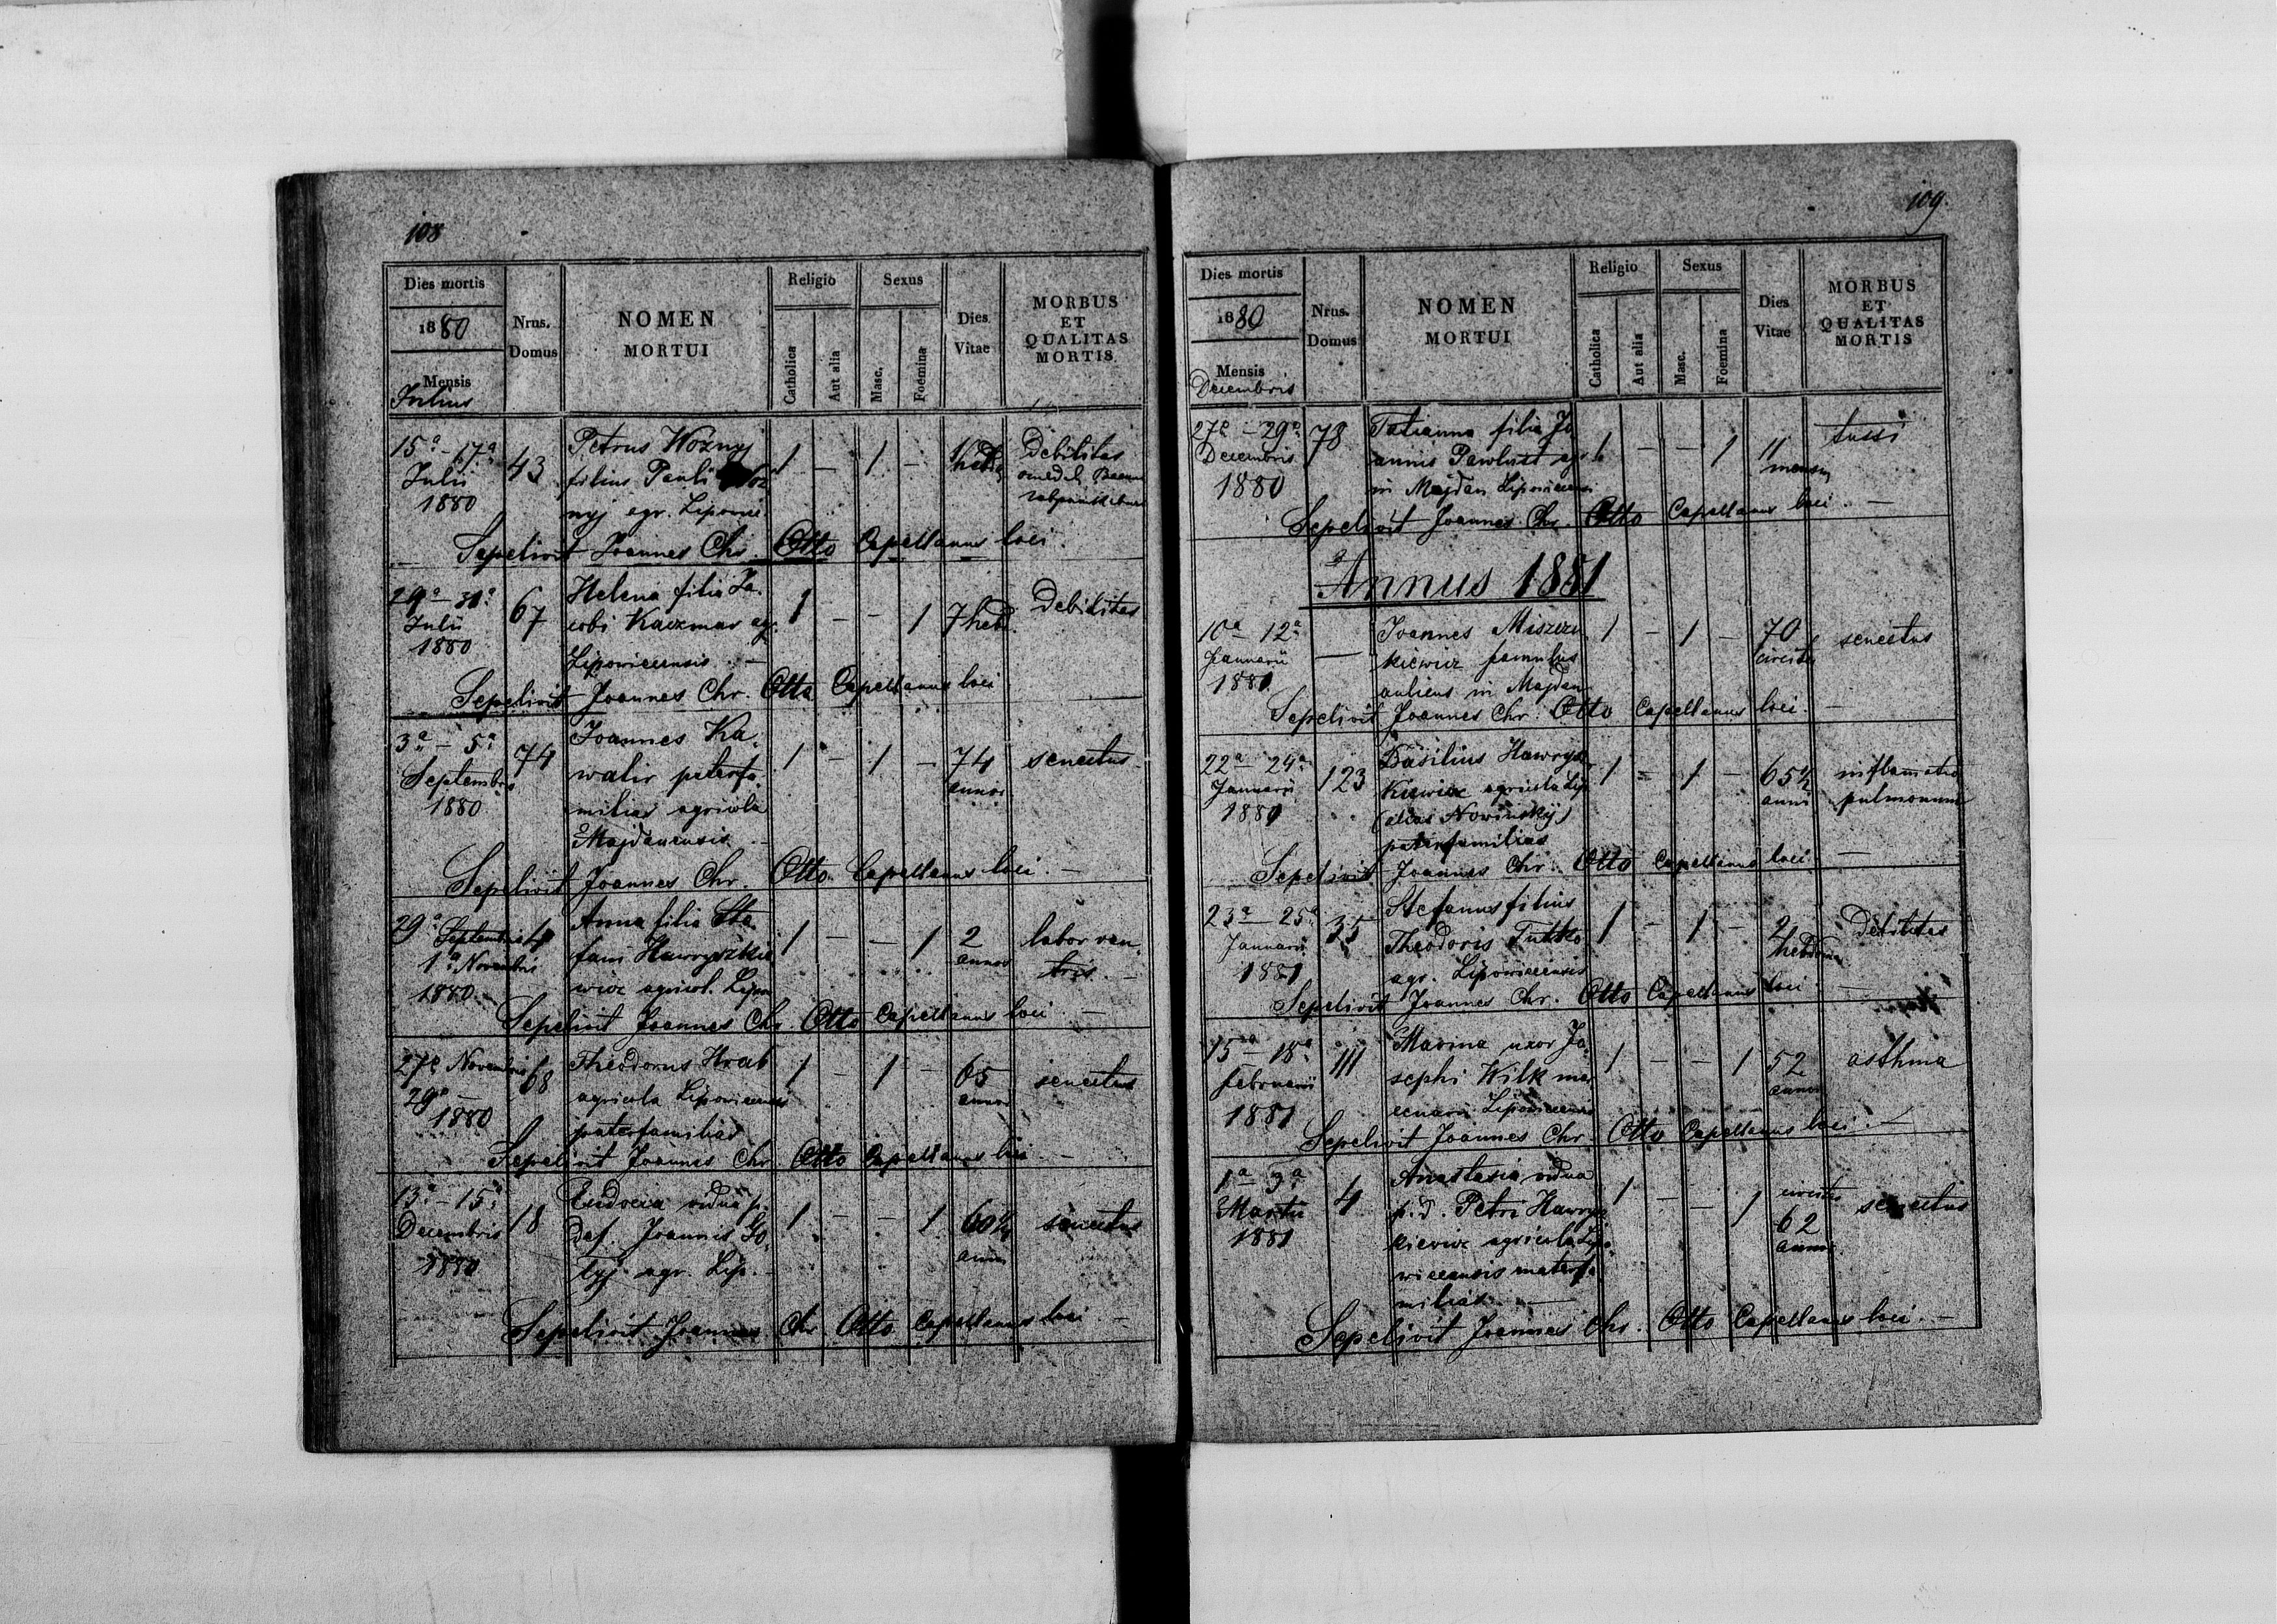 108
Dies mortis
1880
Mensis
Julius
Nrus.
Domus
NOMEN
MORTUI
Religio
Catholica
Aut alia
Sexus
Masc.
Foemina
Dies
Vitae
MORBUS
ET
QUALITAS
MORTIS
15ª - 17ª
Julii
1880
43
Petrus Woznyj
filius Pauli Woz
nyj agr. Lipowic.
1 — 1 —
hebd
Debilitas
Sepelivit Joannes Chr. Otto Capellanus loci.
29ª - 31ª
Julii
1880
67
Helena filia Ja
cobi Kaczmar agr.
Lipowicensis. —
1 — — 1
7 hebd.
debilitas
Sepelivit Joannes Chr. Otto Capellanus loci
3ª - 5ª
Septembris
1880
74
Joannes Ka
walir paterfa
milias agricola
Majdanensis. —
1 — 1 —
74
annor
senectus
Sepelivit Joannes Chr. Otto Capellanus loci. —
29ª Septembris
1ª Novembris
1880
4
Anna filia Ste
fani Hawryszkie
wicz agricol. Lipow
1 — — 1
2
annor
labor ven
tris. —
Sepelivit Joannes Chr. Otto Capellanus loci —
27ª Novembris
29ª —
1880
68
Theodorus Hrab
agricola Lipowicensis
paterfamilias
1 — 1 —
65
annor
senectus
Sepelivit Joannes Chr. Otto Capellanus loci —
13ª - 15ª
Decembris
1880
18
Eudocia vidua p.
def. Joannis Go
tyj agr. Lip. —
1 — — 1
60½
annor
senectus
Sepelivit Joannes Chr. Otto Capellanus loci —
109.
Dies mortis
1880
Mensis
Decembris
Nrus.
Domus
NOMEN
MORTUI
Religio
Catholica
Aut alia
Sexus
Masc.
Foemina
Dies
Vitae
MORBUS
ET
QUALITAS
MORTIS
27ª - 29ª
Decembris
1880
78
Tatianna filia Jo
annis Pawlust agr
in Majdan Lipowicensi
1 — — 1
11
mensn
tussi
Sepelivit Joannes Chr. Otto Capellanus loci. —
Annus 1881
10ª - 12ª
Januarii
1881
—
Joannes Miszczu
kiewicz famulus
aulicus in Majdan
1 — 1 —
70
circiter
senectus
Sepelivit Joannes Chr. Otto Capellanus loci. —
22ª - 24ª
Januarii
1881
123
Basilius Hawrysz
kiewicz agricola Lip.
(alias Nowinskyj)
paterfamilias
1 — 1 —
65½
anni
inflammatio
pulmonum
Sepelivit Joannes Chr. Otto Capellanus loci —
23ª - 25ª
Januarii
1881
35
Stefanus filius
Theodoris Tutko
agr. Lipowicensis
1 — 1 —
2
hebdom
debilitas
Sepelivit Joannes Chr. Otto Capellanus loci —
15ª - 18ª
Februarii
1881
111
Marina uxor Jo
sephi Wilk mer
cenarii Lipowicensis
1 — — 1
52
annor
asthma
Sepelivit Joannes Chr. Otto Capellanus loci. —
1ª - 3ª
Martii
1881
4
Anastasia vidua
p. d. Petri Hawrysz
kiewicz agricola Lipo
wicensis materfa
milias. —
1 — — 1
circiter
62
annor
senectus
Sepelivit Joannes Chr. Otto Capellanus loci. —